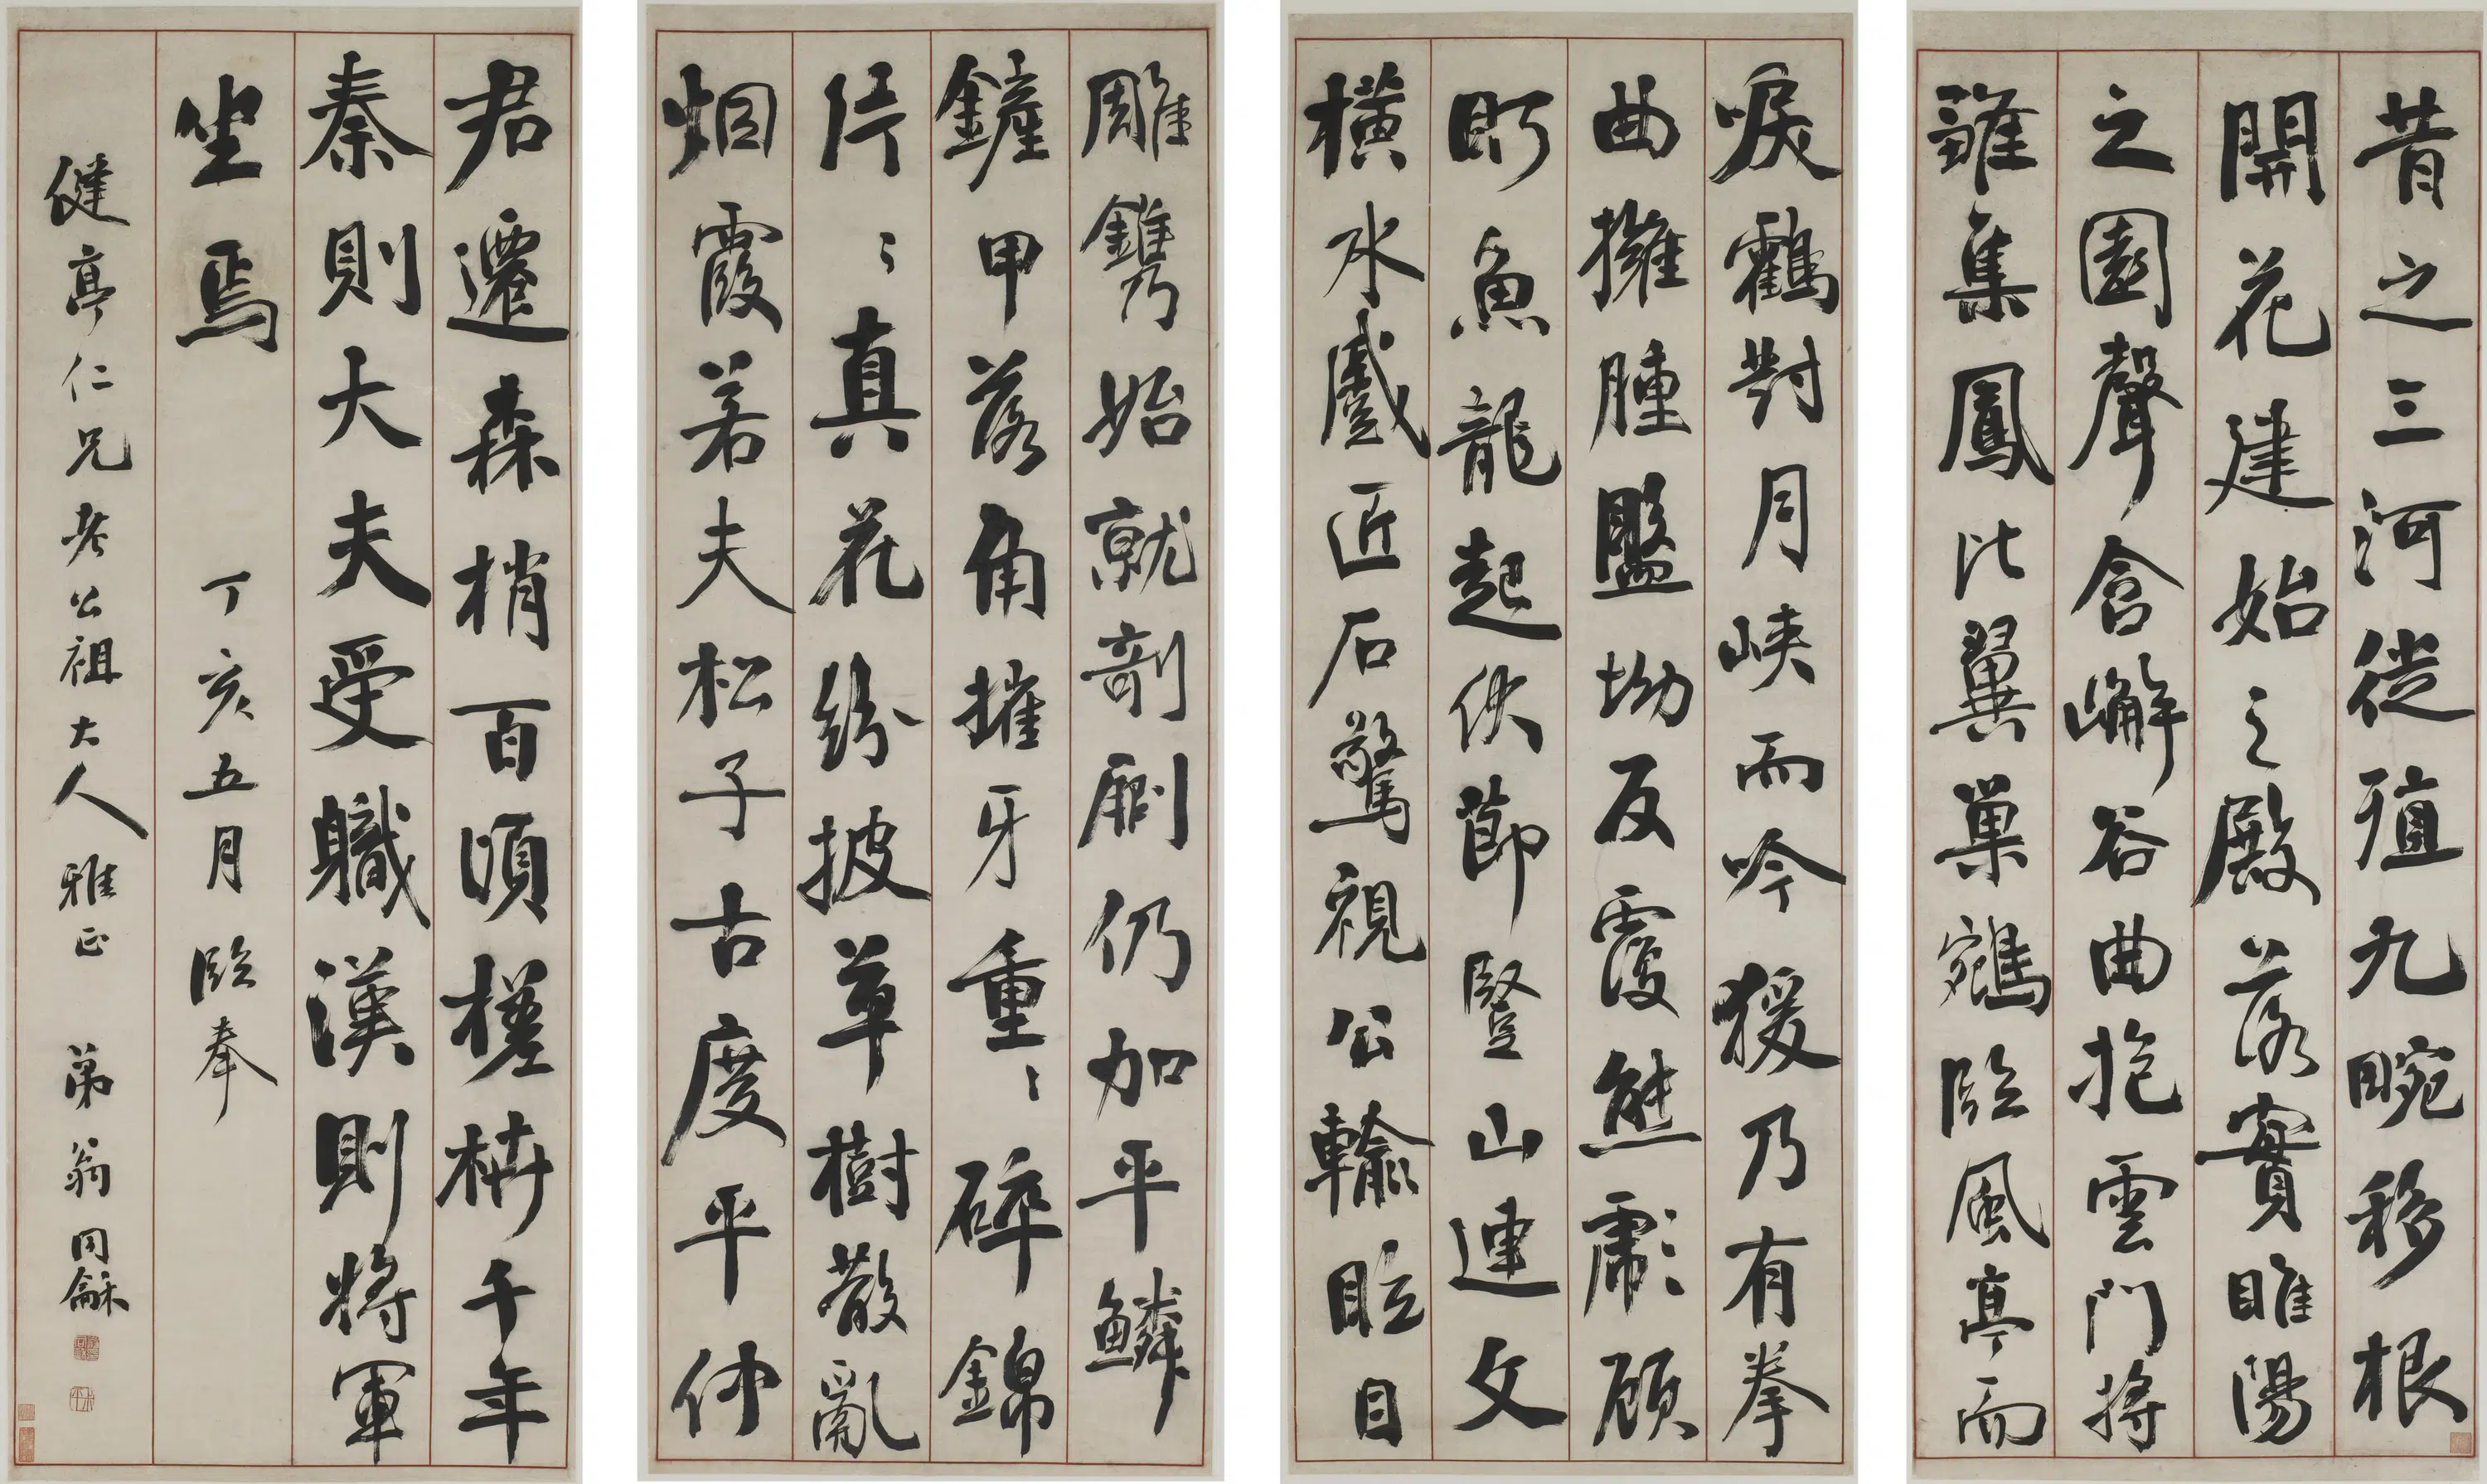 昔之三河徙殖九畹移根
開花建始之殿落實睢陽
之園聲含嶰谷曲抱雲門將
雖集鳳比翼巢鵷臨風亭而
唳鶴對月峽而吟猨乃有拳
曲擁腫盤坳反覆熊彪顧
盼魚龍起伏節豎山連文
橫水蹙匠石驚視公輸眩目
雕鐫始就剞劂仍加平鱗
鏟甲落角摧牙重〻碎錦
片〻真花紛披草樹散亂
烟霞若夫松子古度平仲
君遷森梢百頃槎枿千年
秦則大夫受職漢則將軍
坐焉
丁亥五月臨奉
健亭仁兄老公祖大人雅正 弟翁同龢